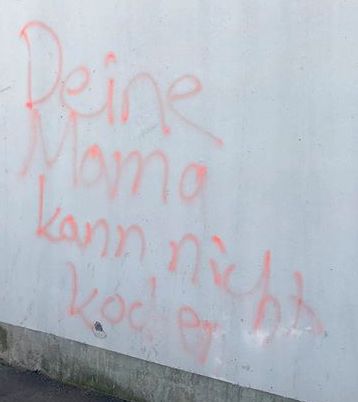 Deine
Mama
kann nicht
kochen